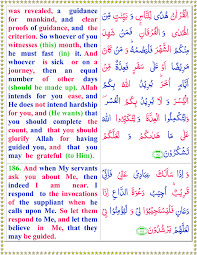 was revealed, a guidance
for mankind, and clear
proofs of guidance, and the
criterion. So whoever of you
witnesses (this) month, then
he must fast (in) it. And
whoever is sick or on a
journey, then an equal
number of other days
(should be made up). Allah
intends for you ease, and
He does not intend hardship
for you, and (He wants) that
you should complete the
count, and that you should
glorify Allah for having
guided you, and that you
may be grateful (to Him).
186. And when My servants
ask you about Me, then
indeed I am near. I
respond to the invocations
of the suppliant when he
calls upon Me. So let them
respond to Me, and let them
believe in Me, that they
may be guided.
الْقُرْاٰنُ هُدًى لِّلنَّاسِ وَ بَيِّنٰتٍ مِّنَ
الْهُدٰى وَ الْفُرْقَانِ فَمَنْ شَهِدَ
مِنْكُمُ الشَّهْرَ فَلْيَصُمْهُ وَ مَنْ كَانَ
مَرِيْضًا اَوْ عَلٰى سَفَرٍ فَعِدَّةٌ مِّنْ
اَيَّامٍ اُخَرَ يُرِيْدُ اللّٰهُ بِكُمُ
الْيُسْرَ وَ لَا يُرِيْدُ بِكُمُ الْعُسْرَ
وَ لِتُكْمِلُوا الْعِدَّةَ وَ لِتُكَبِّرُوا
اللّٰهَ عَلٰى مَا هَدٰىكُمْ وَ لَعَلَّكُمْ
تَشْكُرُوْنَ
وَ اِذَا سَاَلَكَ عِبَادِيْ عَنِّيْ فَاِنِّيْ
قَرِيْبٌ اُجِيْبُ دَعْوَةَ الدَّاعِ اِذَا
دَعَانِ فَلْيَسْتَجِيْبُوْا لِيْ وَ لْيُؤْمِنُوْا بِيْ
لَعَلَّهُمْ يَرْشُدُوْنَ